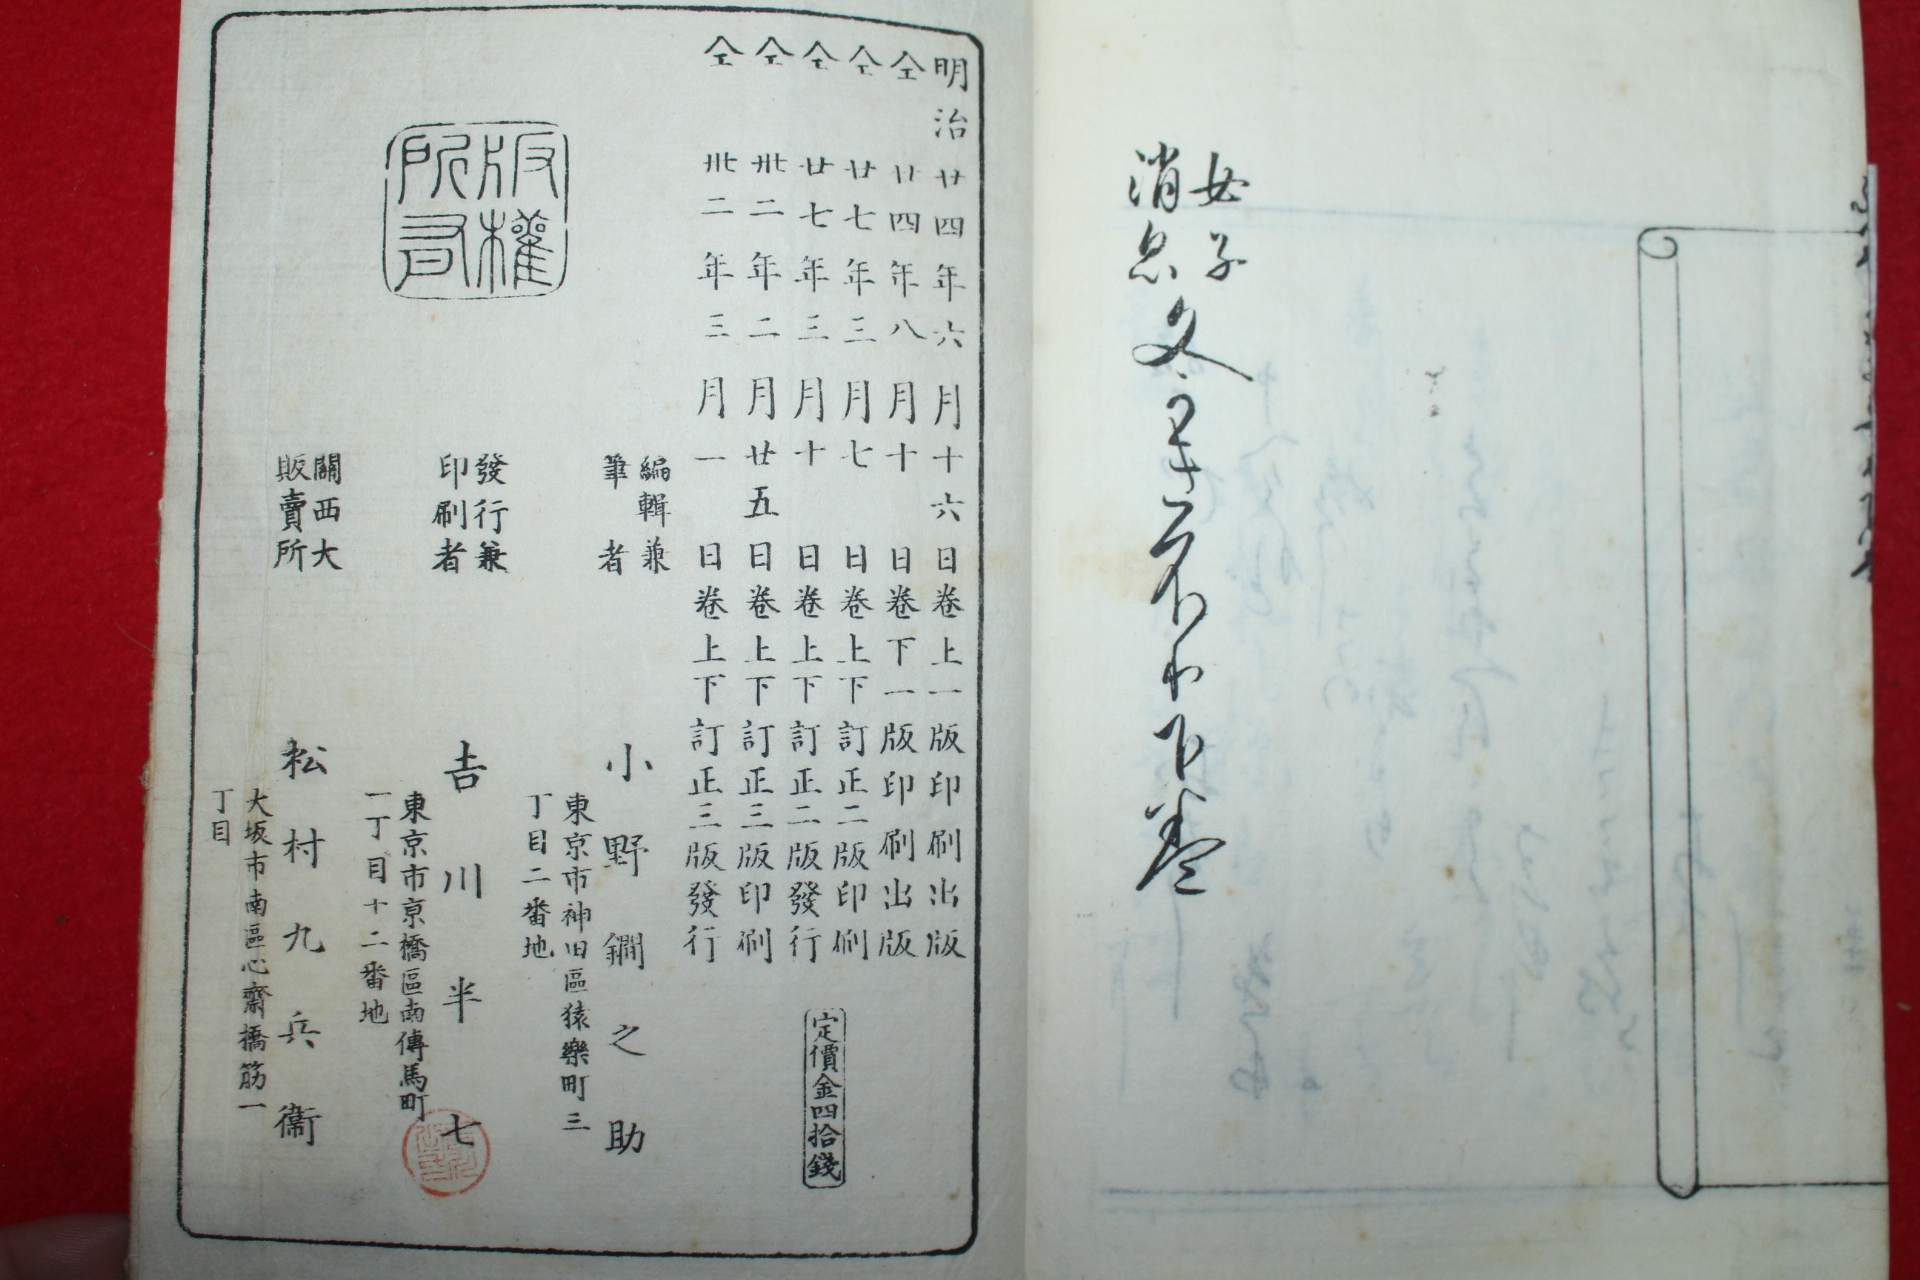 女子
消息
文
下卷
明治廿四年六月十六日卷上一版印刷出版
仝廿四年八月十日卷下一版印刷出版
仝廿七年三月七日卷上下訂正二版印刷
仝廿七年三月十日卷上下訂正二版發行
仝卅二年二月廿五日卷上下訂正三版印刷
仝卅二年三月一日卷上下訂正三版發行
定價金四拾錢
版權
所有
編輯兼
筆者
小野鐗之助
東京市神田區猿樂町三
丁目二番地
發行兼
印刷者
吉川半七
東京市京橋區南傳馬町
一丁目十二番地
關西大
販賣所
松村九兵衞
大坂市南區心齋橋筋一
丁目